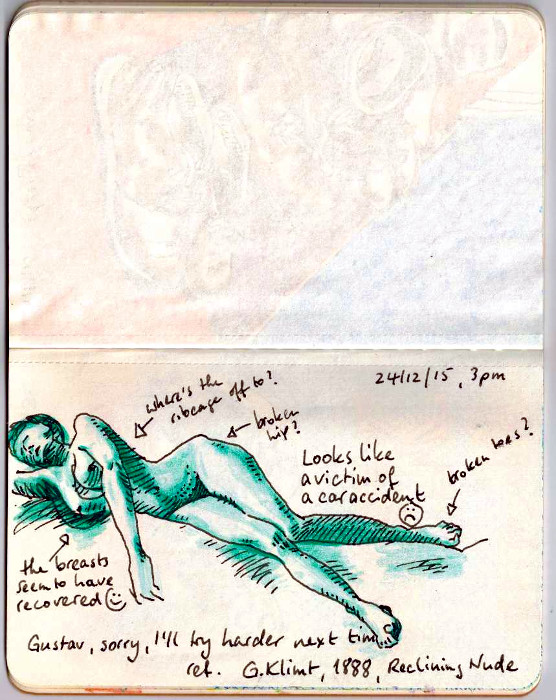 24/12/15, 3pm
where's the
ribcage off to?
broken
hip?
Looks like
a victim of
a car accident
broken toes?
the breasts
seem to have
recovered
Gustav, sorry, I'll try harder next time...
ref. G.Klimt, 1888, Reclining Nude